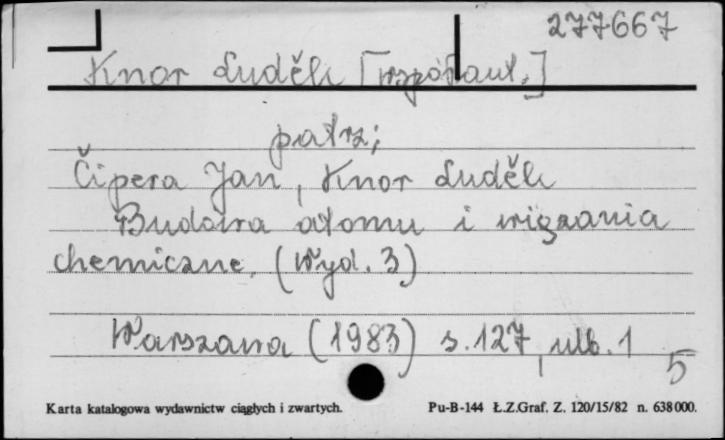 277667
Knor Luděk [współaut.]
patrz;
Čipera Jan, Knor Luděk
Budowa atomu i wiązania
chemiczne. (Wyd. 3)
Warszawa (1983) s. 127, ulb. 1
5
Karta katalogowa wydawnictw ciągłych i zwartych. Pu-B-144 Ł.Z.Graf. Z. 120/15/82 n. 638000.